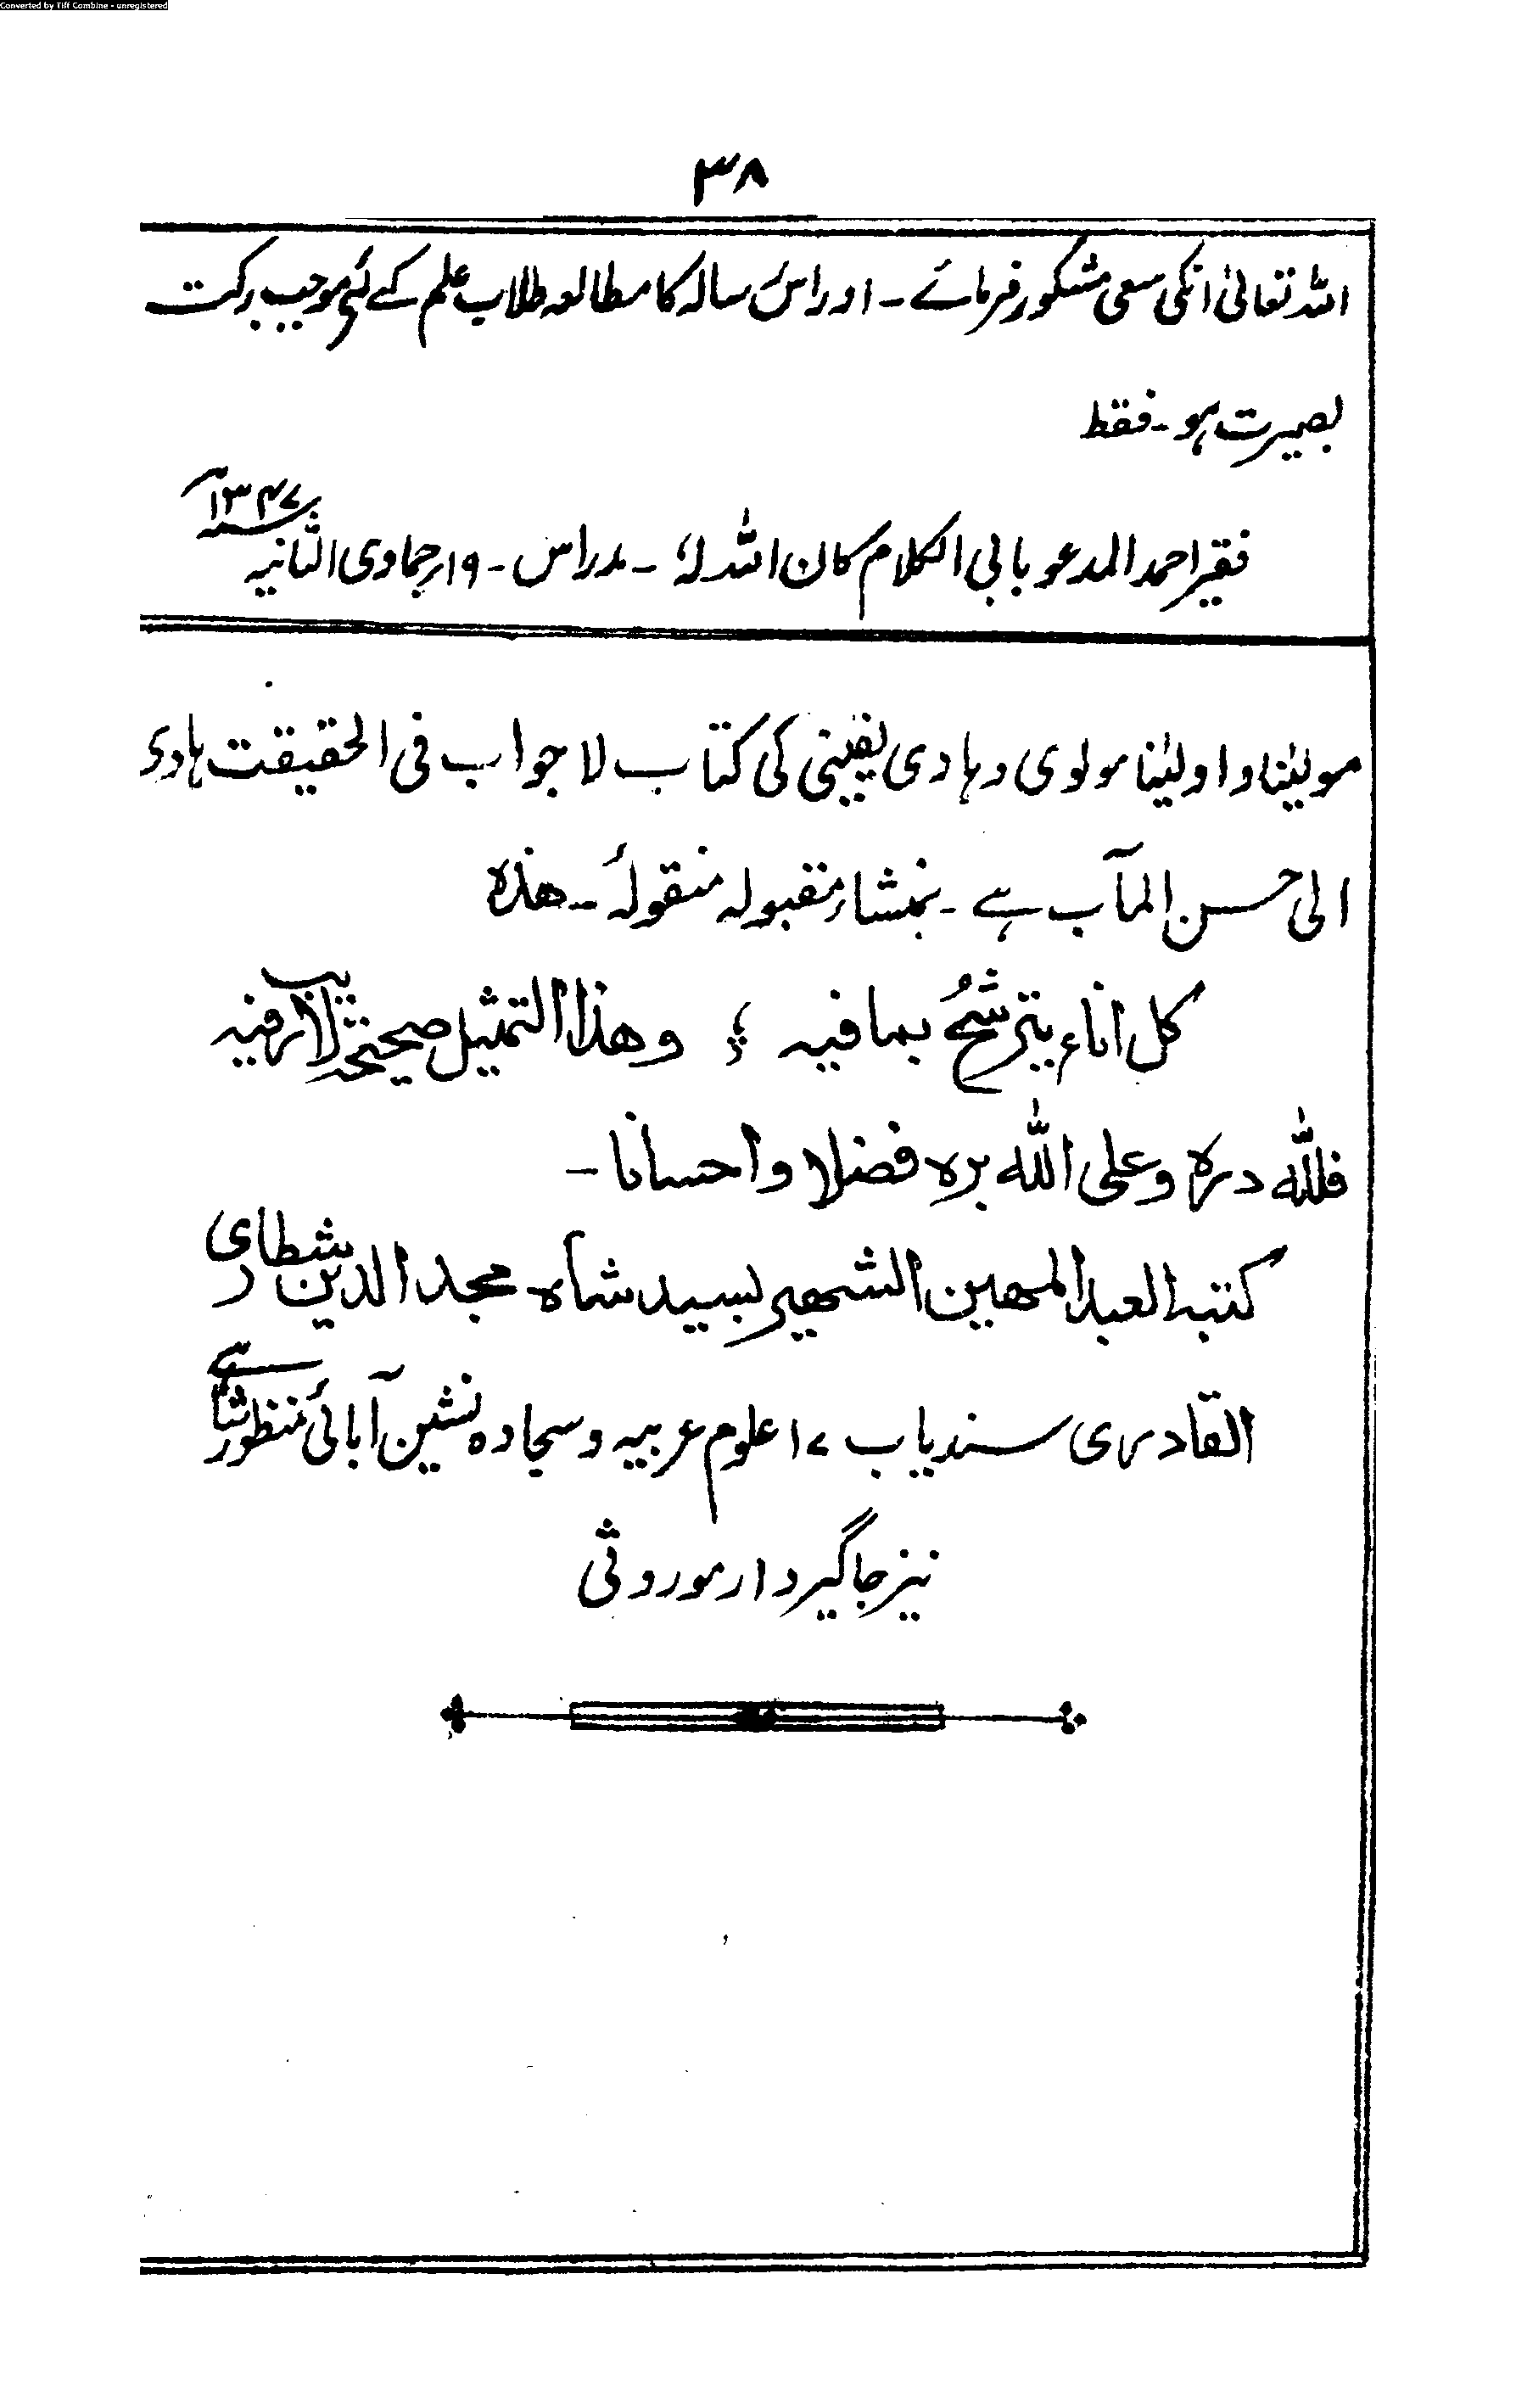 Converted by Tiff Combine - unregistered
۳۸
اللہ تعالیٰ انکی سعی مشکور فرمائے ۔ اور اس رسالہ کا مطالعہ طلاب علم کے لئے موجب برکت
بصیرت ہو ۔ فقط
فقیر احمد المدعو بابی الکلام کان اللہ لہٗ ۔ مدراس ۔ ۱۹ر جمادی الثانیہ ۱۳۴۷؁
مولیٰنا و اولیٰنا مولوی و ہادی یقینی کی کتاب لا جواب فی الحقیقت ہادی
الی حسن المآب ہے ۔ بمنشاء مقبولہ منقولہٗ ۔ ھذہ
کل اناء یترشحُ بما فیہ ؛ وھذا التمثیل صحیح لاریب فیہ
فللّٰہ درہ وعلی اللّٰہ برہ فضلا واحسانا ۔
کتبہ العبد المھین الشھیر بسید شاہ مجد الدین شطاری
القادری سند یاب ۱۷ علوم عربیہ و سجادہ نشین آبائی منظور
نیز جاگیردار موروثی